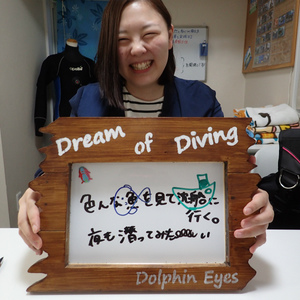 Dream of Diving
色んな魚を見て沈船に
行く。
夜も潜ってみたぁぁぁぁい
Dolphin Eyes